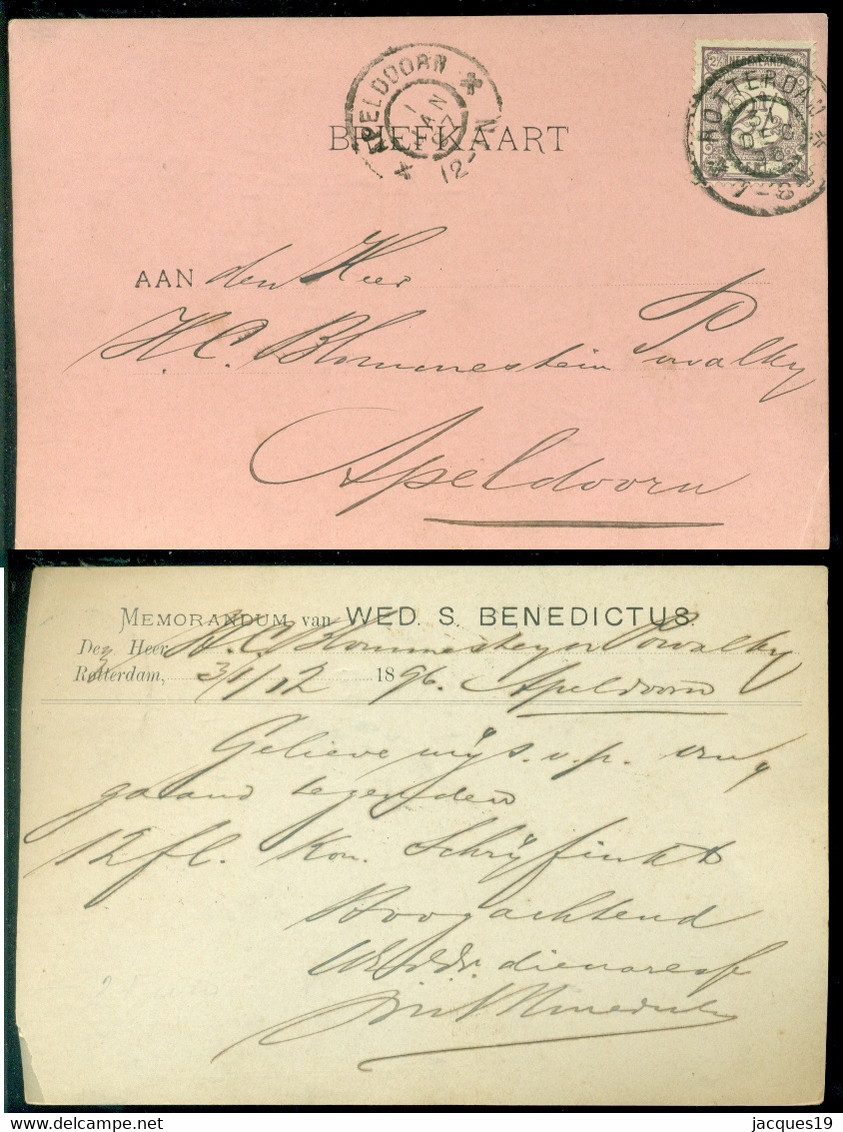 APELDOORN
1 JAN 97
12-
2½ NEDERLAND 2½
ROTTERDAM
31 DEC 96
7-8
BRIEFKAART
AAN den Heer
H.C. Blommestein Powalky
Apeldoorn
MEMORANDUM van WED. S. BENEDICTUS
Den Heer H.C. Blommesteyn Powalky
Rotterdam, 31/12 1896. Apeldoorn
Gelieve mij s.v.p. om
gaand te zenden
12 fl. Kon. Schrijfinkt
Hoogachtend
UEd dv. dienaresse
delcampe.net
jacques19